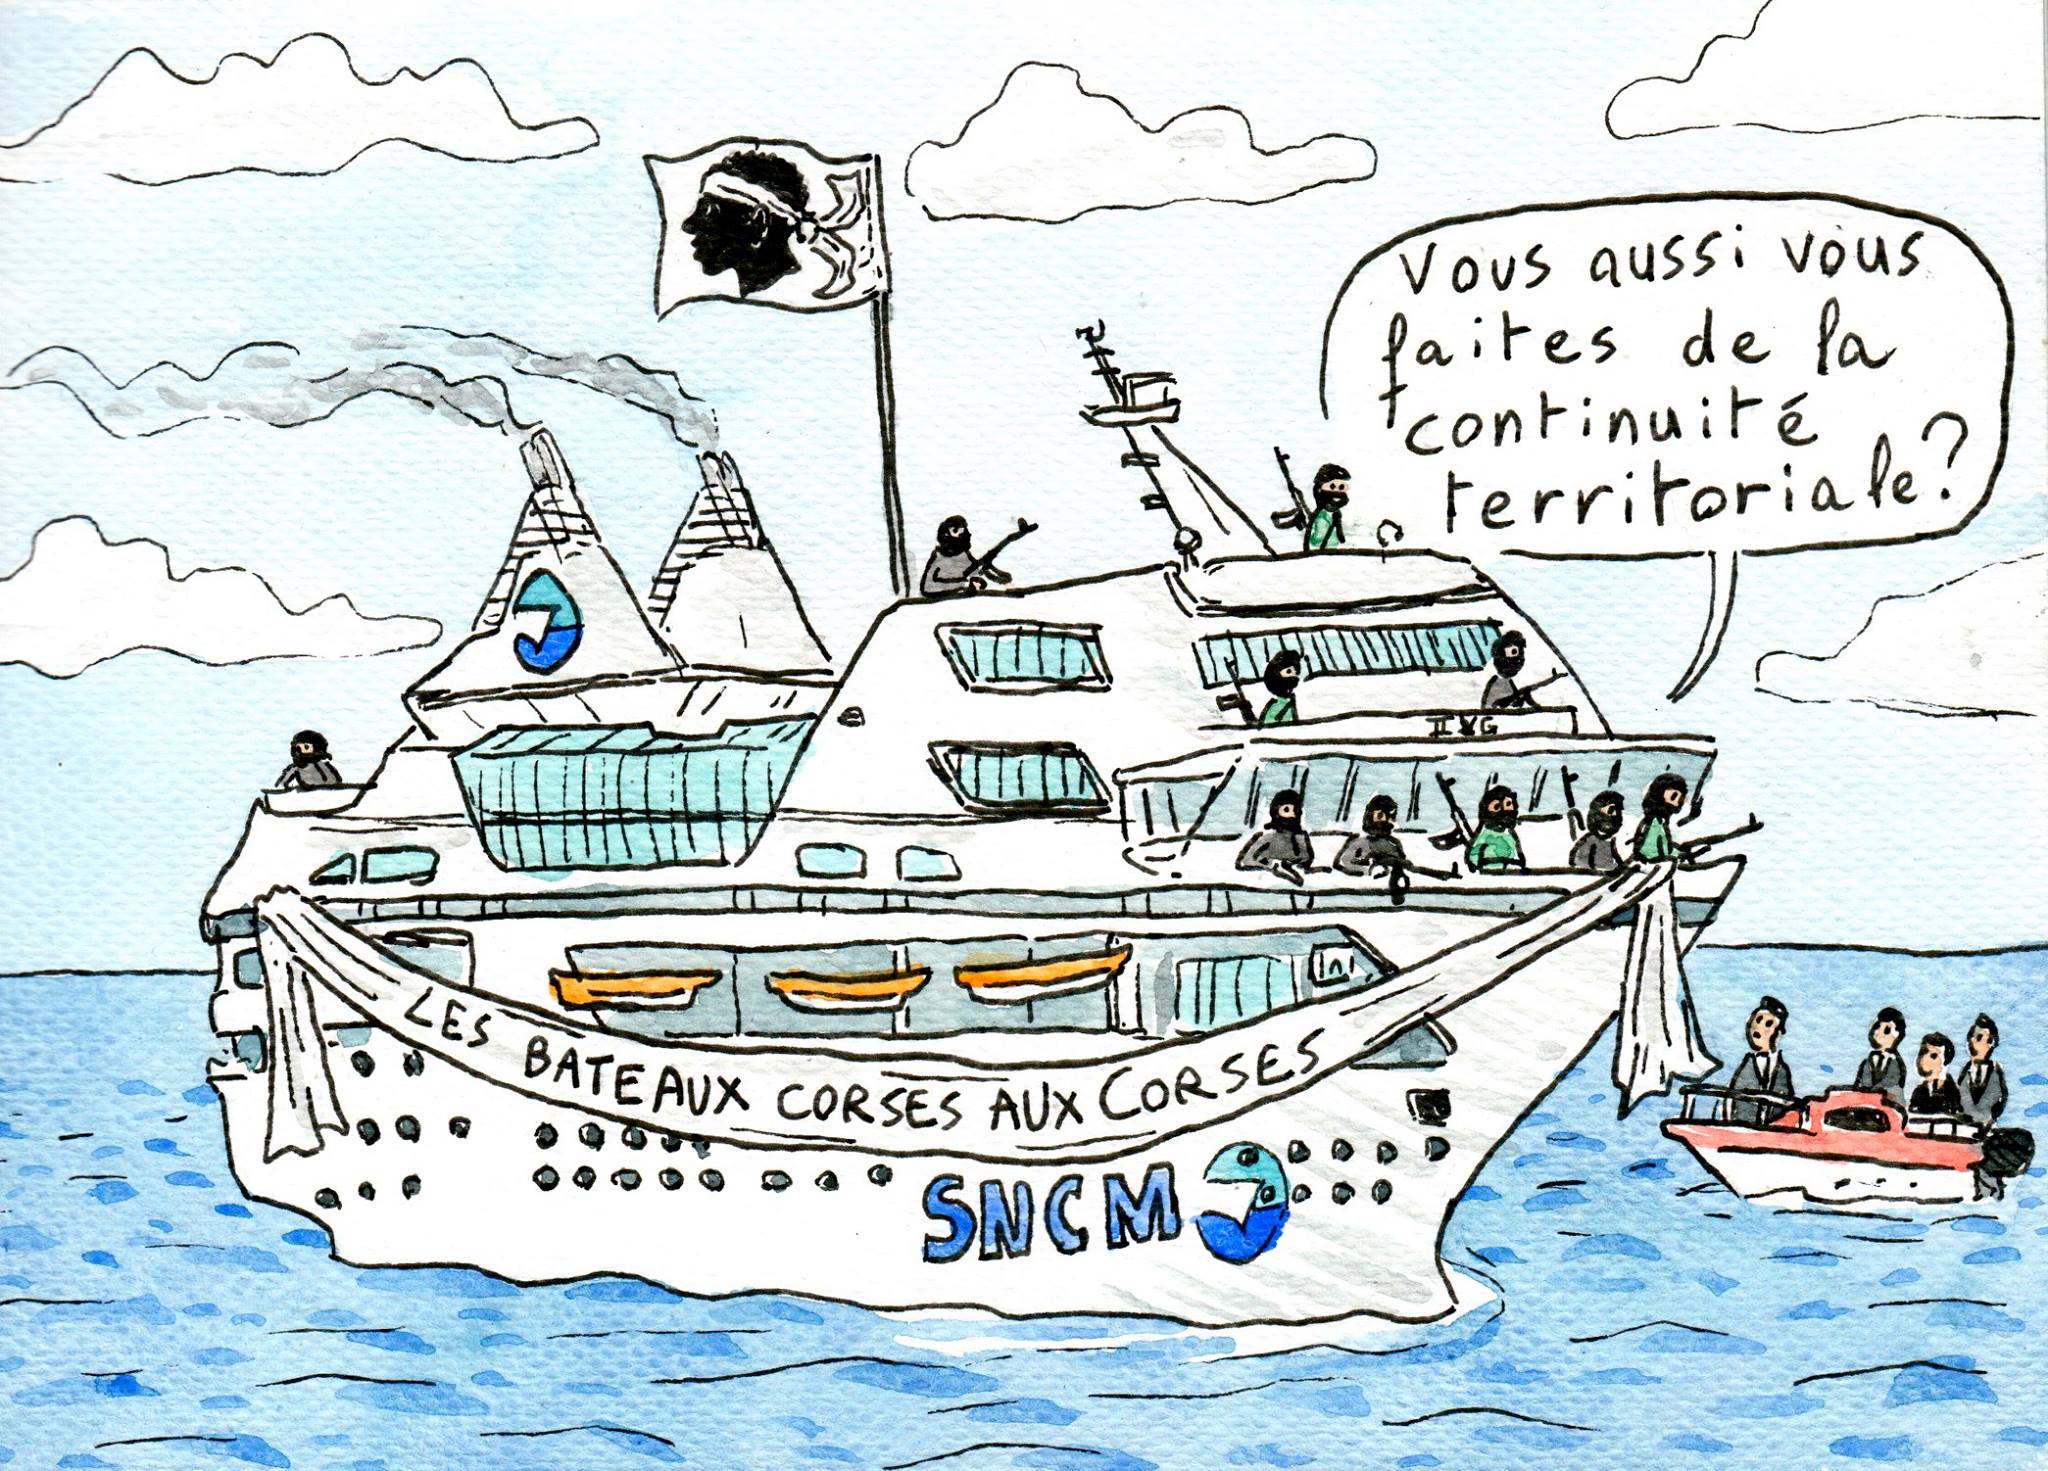 Vous aussi vous
faites de la
continuité
territoriale?
LES BATEAUX CORSES AUX CORSES
SNCM